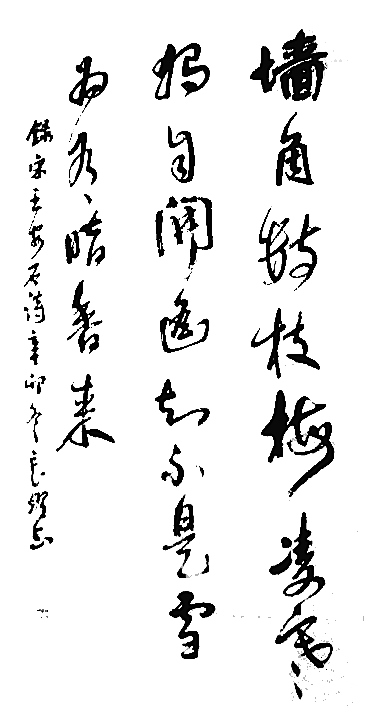 墙角数枝梅凌寒
独自开遥知不是雪
为有暗香来
录宋王安石诗辛卯冬